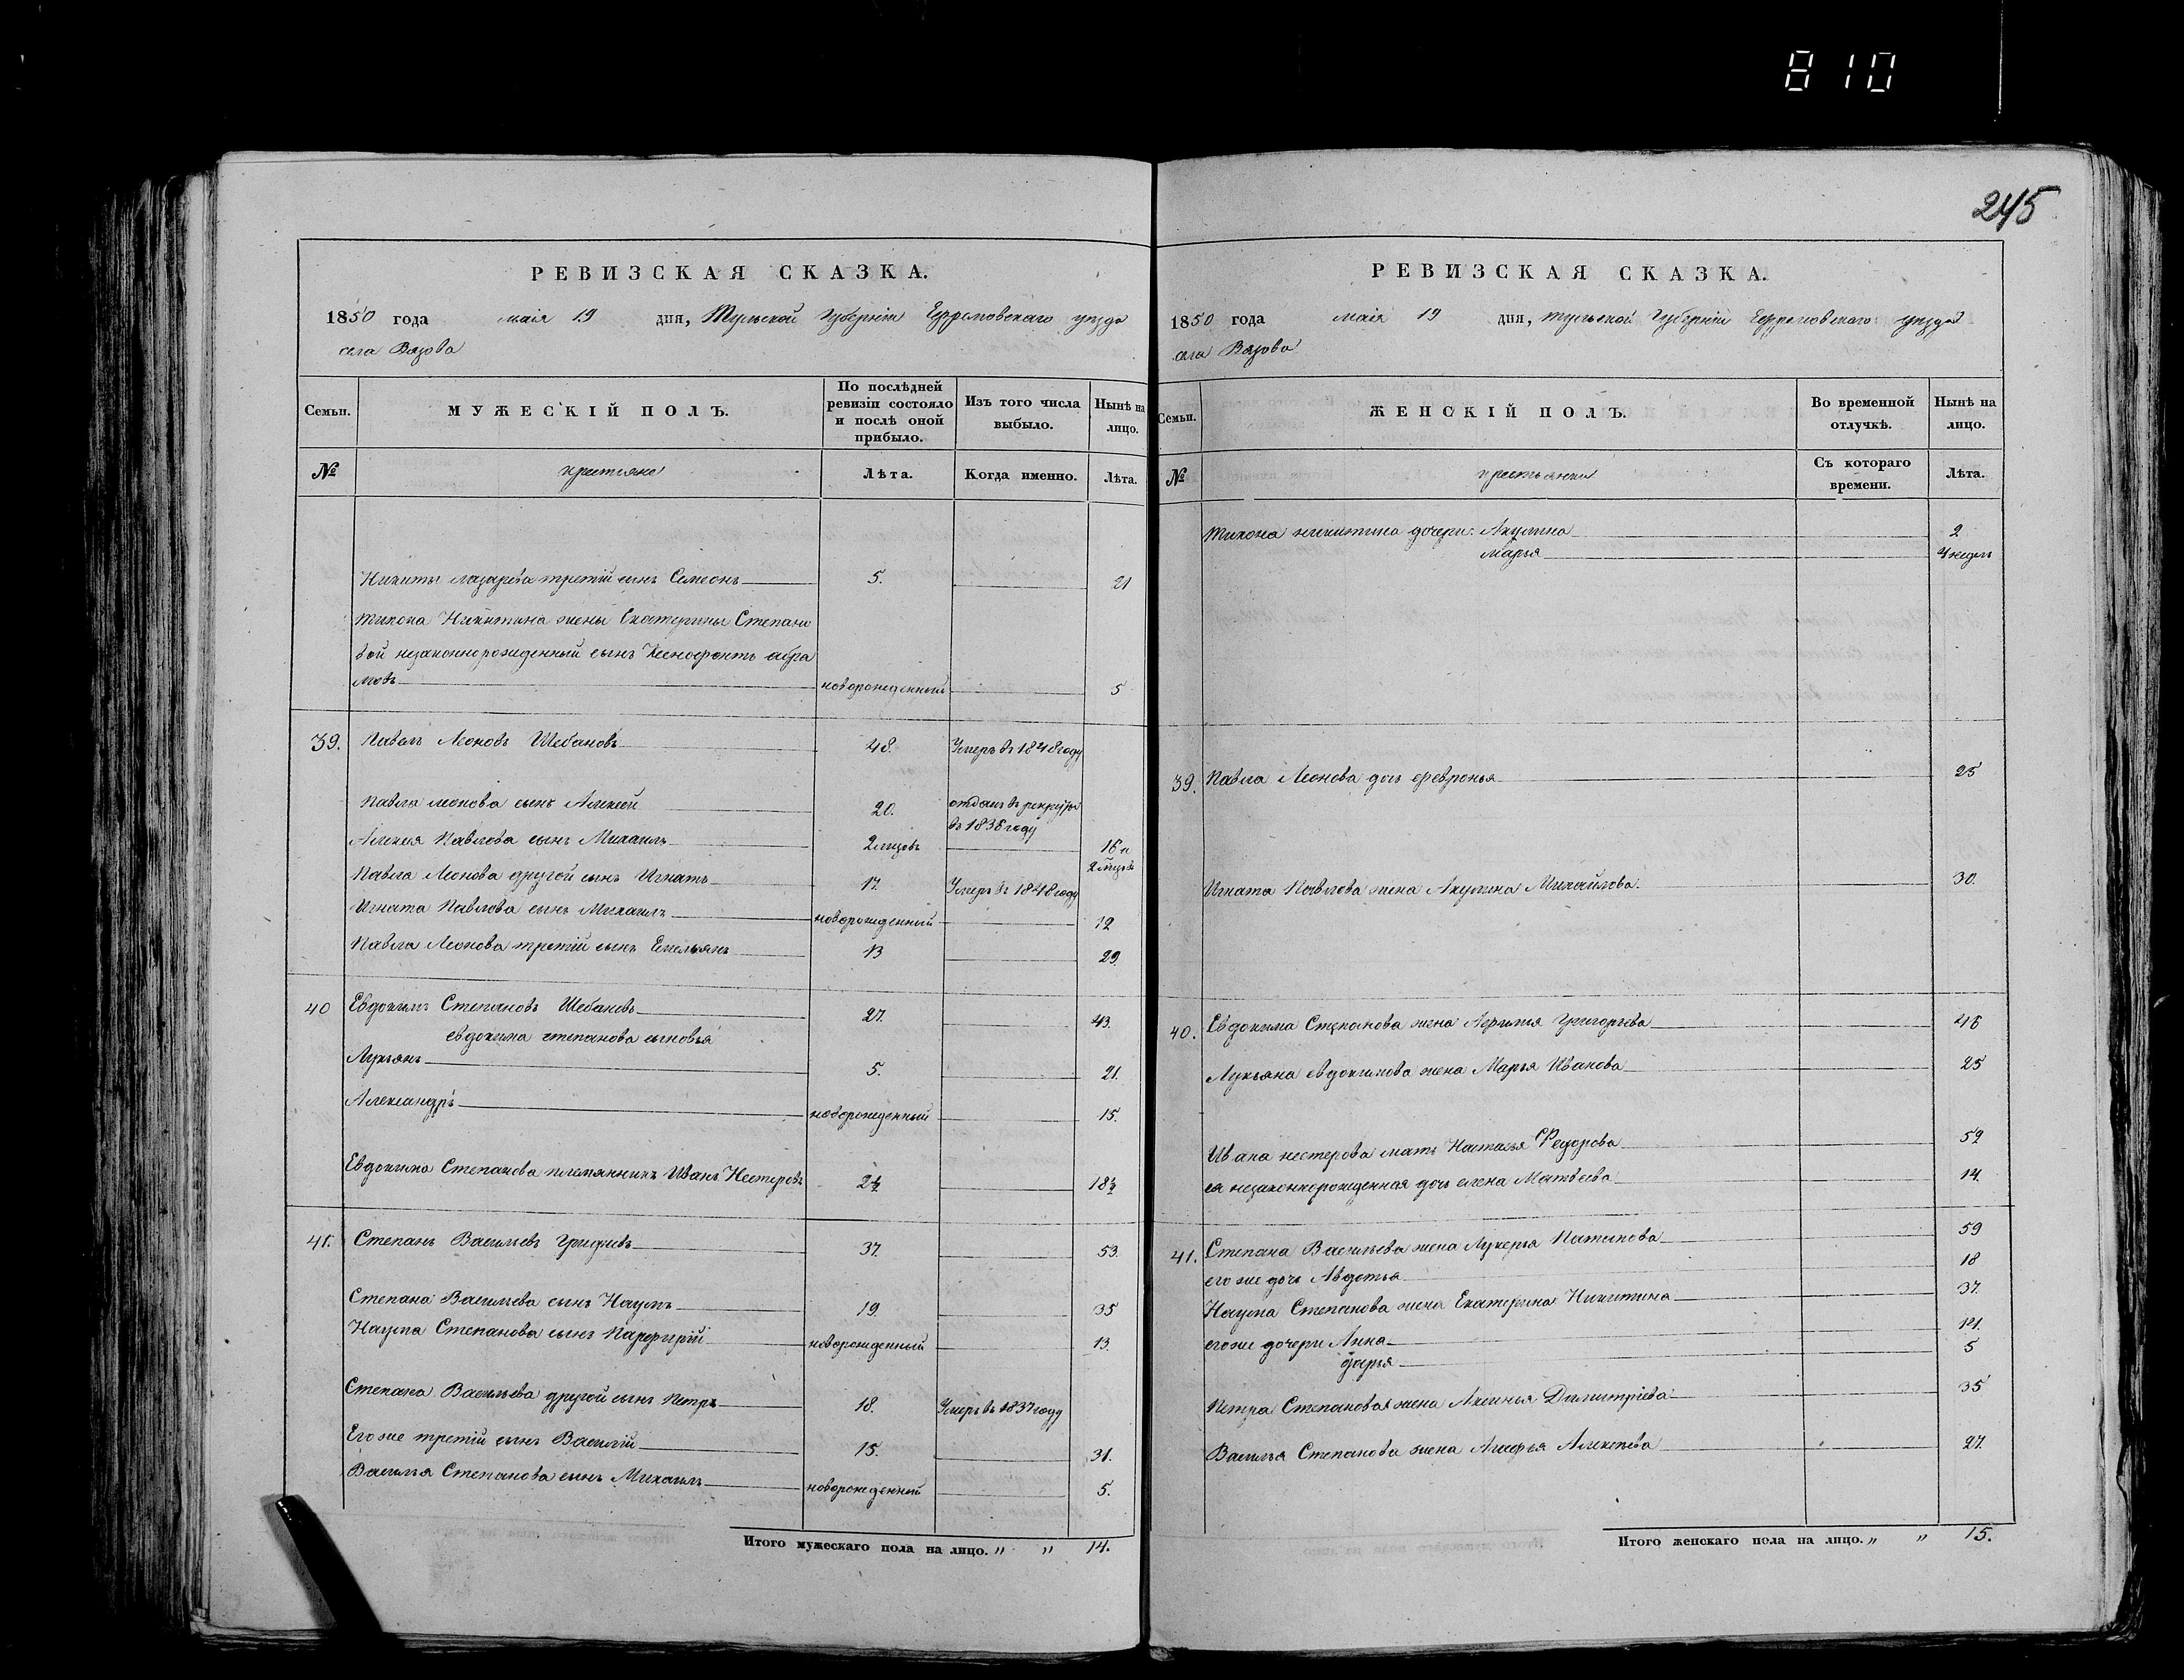 810
245
РЕВИЗСКАЯ СКАЗКА.
1850 года маія 19 дня, Тульской Губерніи Ефремовскаго уѣзда
села Вязова
Семьи. МУЖЕСКІЙ ПОЛЪ. По послѣдней ревизіи состояло и послѣ оной прибыло. Изъ того числа выбыло. Нынѣ на лицо.
№ крестьяне Лѣта. Когда именно. Лѣта.
Никиты лазарева третій сынъ Семіонъ 5. 21
Тихона Никитина жены Екатерины Степано
вой незаконнорожденный сынъ Ксенофонтъ абра
мовъ новорожденный 5
39. Павелъ Леоновъ Шебановъ 48. Умеръ въ 1848 году
Павла леонова сынъ Алексей 20. отданъ въ рекруты
въ 1838 году
Алексея Павлова сынъ Михаилъ 2 мцовъ 16 и
2 мцов
Павла Леонова другой сынъ Игнатъ 17. Умеръ въ 1848 году
Игната Павлова сынъ Михаилъ новорожденный 12
Павла Леонова третій сынъ Емельянъ 13 29.
40 Евдокимъ Степановъ Шебановъ 27. 43.
евдокима степанова сыновья
Лукьянъ 5. 21.
Александръ новорожденный 15.
Евдокима Степанова племянникъ Иванъ Нестеровъ 2½ 18½
41. Степанъ Васильевъ Гридневъ 37. 53.
Степана Васильева сынъ Наумъ 19. 35
Наума Степанова сынъ Парфирій новорожденный 13.
Степана Васильева другой сынъ Петръ 18. Умеръ въ 1837 году
Егоже третій сынъ Василій 15. 31.
Василья Степанова сынъ Михаилъ новорожденный 5.
Итого мужескаго пола на лицо. „ „ 14.
РЕВИЗСКАЯ СКАЗКА.
1850 года маія 19 дня, тульской Губерніи Ефремовскаго уѣзда
села Вязова
Семьи. ЖЕНСКІЙ ПОЛЪ. Во временной отлучкѣ. Нынѣ на лицо.
№ крестьянки Съ котораго времени. Лѣта.
Тихона никитина дочери: Акулина 2
Марья 4 недель
39. Павла Леонова дочь февронья 25
Игната Павлова жена Акулина Михайлова. 30.
40. Евдокима Степанова жена Афимья Григорьева 46
Лукьяна евдокимова жена Марья Иванова 25
Ивана нестерова мать Наталья Федорова 59
ея незаконнорожденная дочь елена Матвеева 14.
41. Степана Васильева жена Лукерья Патапова 59
его же дочь Авдотья 18
Наума Степанова жена Екатерина Никитина 37.
егоже дочери Анна 14.
дарья 5
Петра Степанова жена Аксинья Димитріева 35
Василья Степанова жена Агафья Алексѣева 27.
Итого женскаго пола на лицо. „ „ 15.